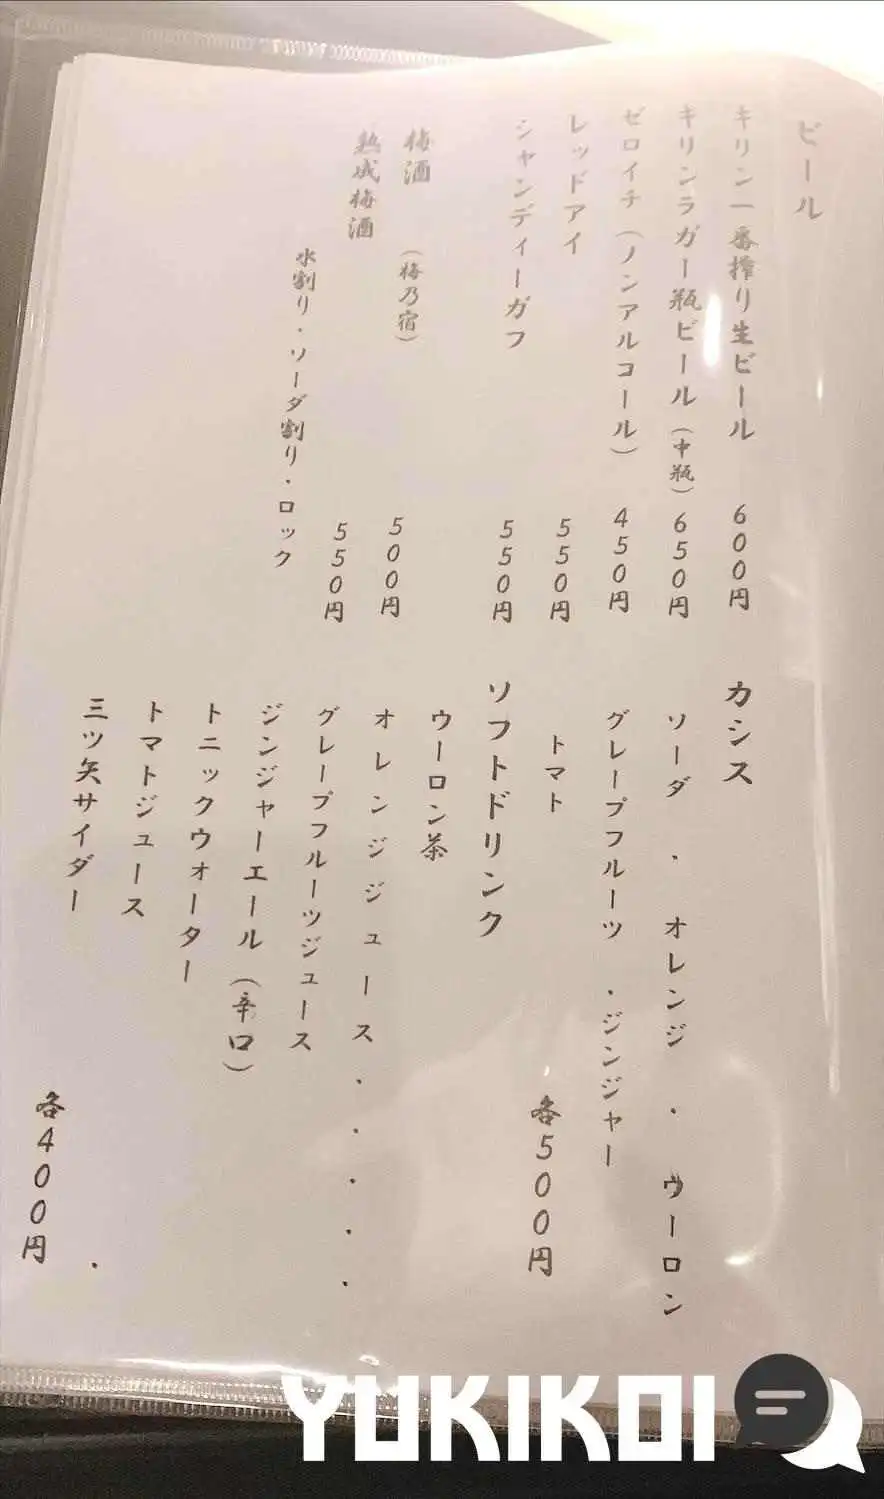 ビール
キリン一番搾り生ビール 600円
キリンラガー瓶ビール(中瓶) 650円
ゼロイチ(ノンアルコール) 450円
レッドアイ 550円
シャンディーガフ 550円
梅酒 (梅乃宿) 500円
熟成梅酒 550円
水割り・ソーダ割り・ロック
カシス
ソーダ ・ オレンジ ・ ウーロン
グレープフルーツ ・ジンジャー
トマト 各500円
ソフトドリンク
ウーロン茶
オレンジジュース・・・・・
グレープフルーツジュース
ジンジャーエール(辛口)
トニックウォーター
トマトジュース ・
三ツ矢サイダー 各400円
YUKIKOI